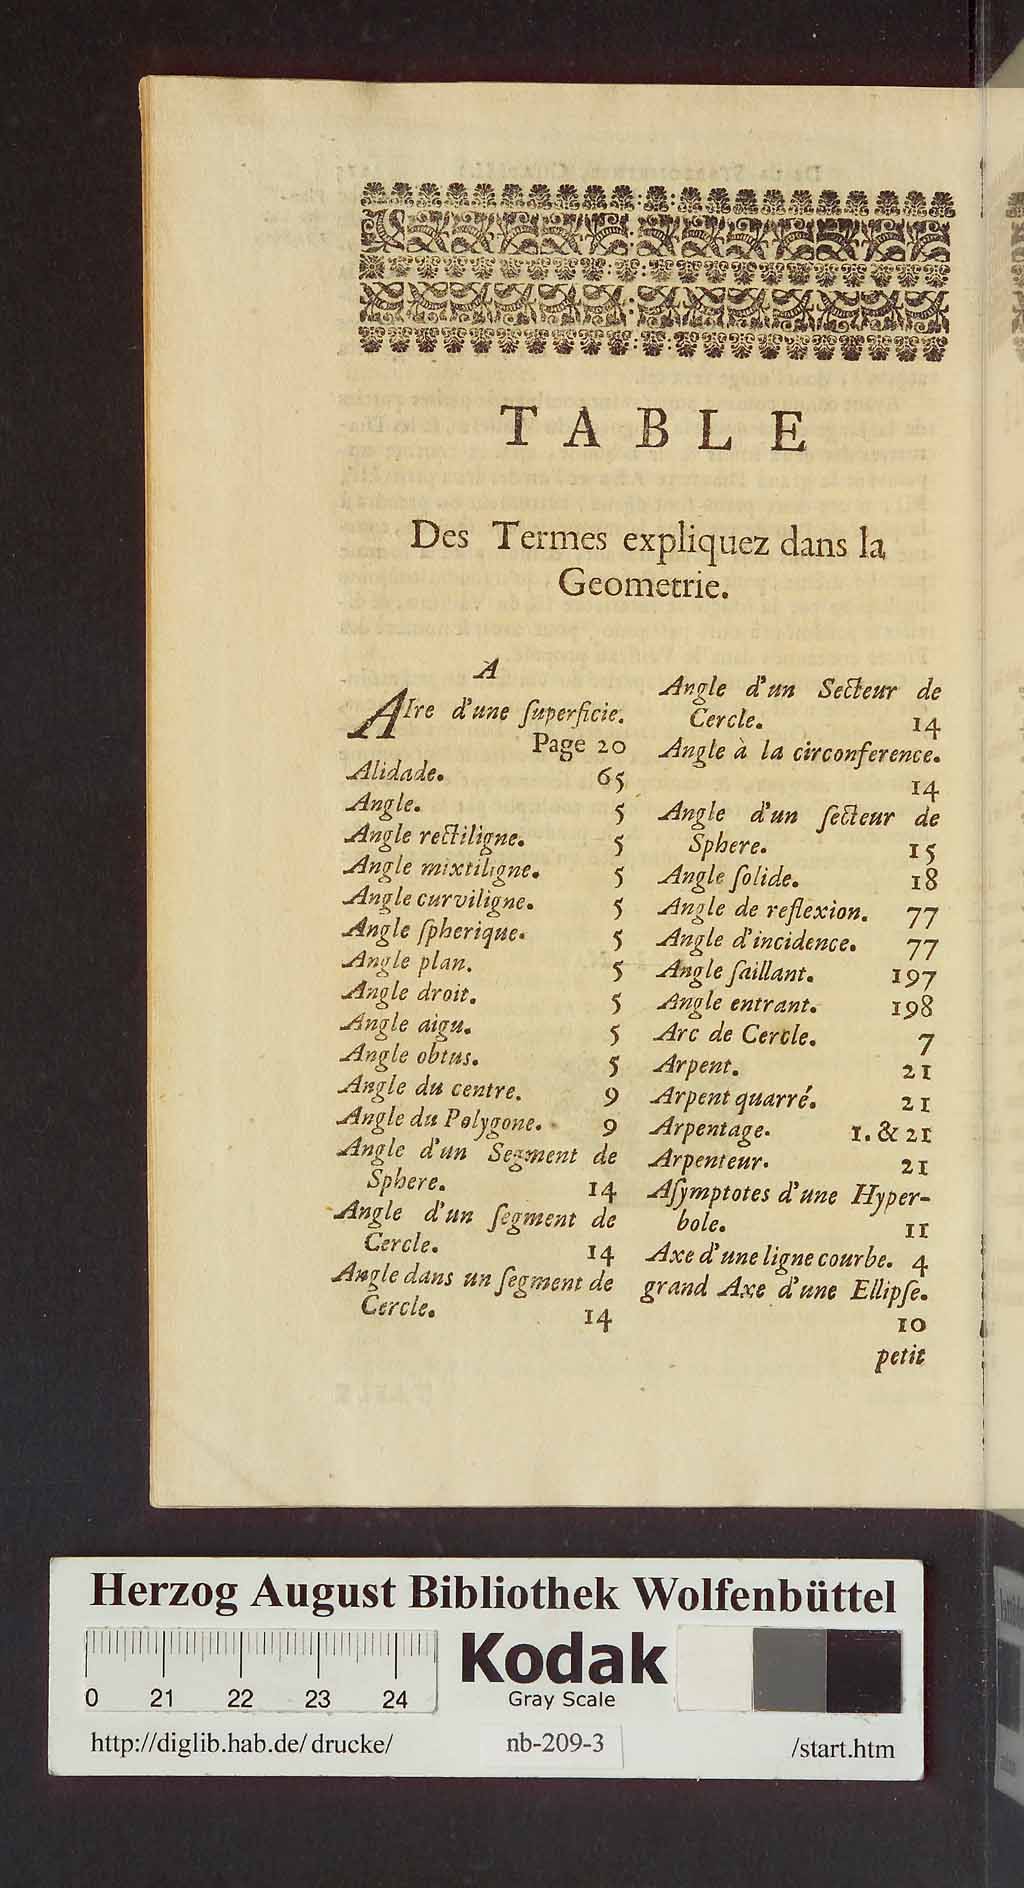 TABLE
Des Termes expliquez dans la
Geometrie.
A
AIre d'une ſuperficie.
Page 20
Alidade. 65
Angle. 5
Angle rectiligne. 5
Angle mixtiligne. 5
Angle curviligne. 5
Angle ſpherique. 5
Angle plan. 5
Angle droit. 5
Angle aigu. 5
Angle obtus. 5
Angle du centre. 9
Angle du Polygone. 9
Angle d'un Segment de
Sphere. 14
Angle d'un ſegment de
Cercle. 14
Angle dans un ſegment de
Cercle. 14
Angle d'un Secteur de
Cercle. 14
Angle à la circonference.
14
Angle d'un ſecteur de
Sphere. 15
Angle ſolide. 18
Angle de reflexion. 77
Angle d'incidence. 77
Angle ſaillant. 197
Angle entrant. 198
Arc de Cercle. 7
Arpent. 21
Arpent quarré. 21
Arpentage. 1. & 21
Arpenteur. 21
Aſymptotes d'une Hyper-
bole. 11
Axe d'une ligne courbe. 4
grand Axe d'une Ellipſe.
10
petit
Herzog August Bibliothek Wolfenbüttel
0 21 22 23 24
Kodak
Gray Scale
http://diglib.hab.de/ drucke/ nb-209-3 /start.htm